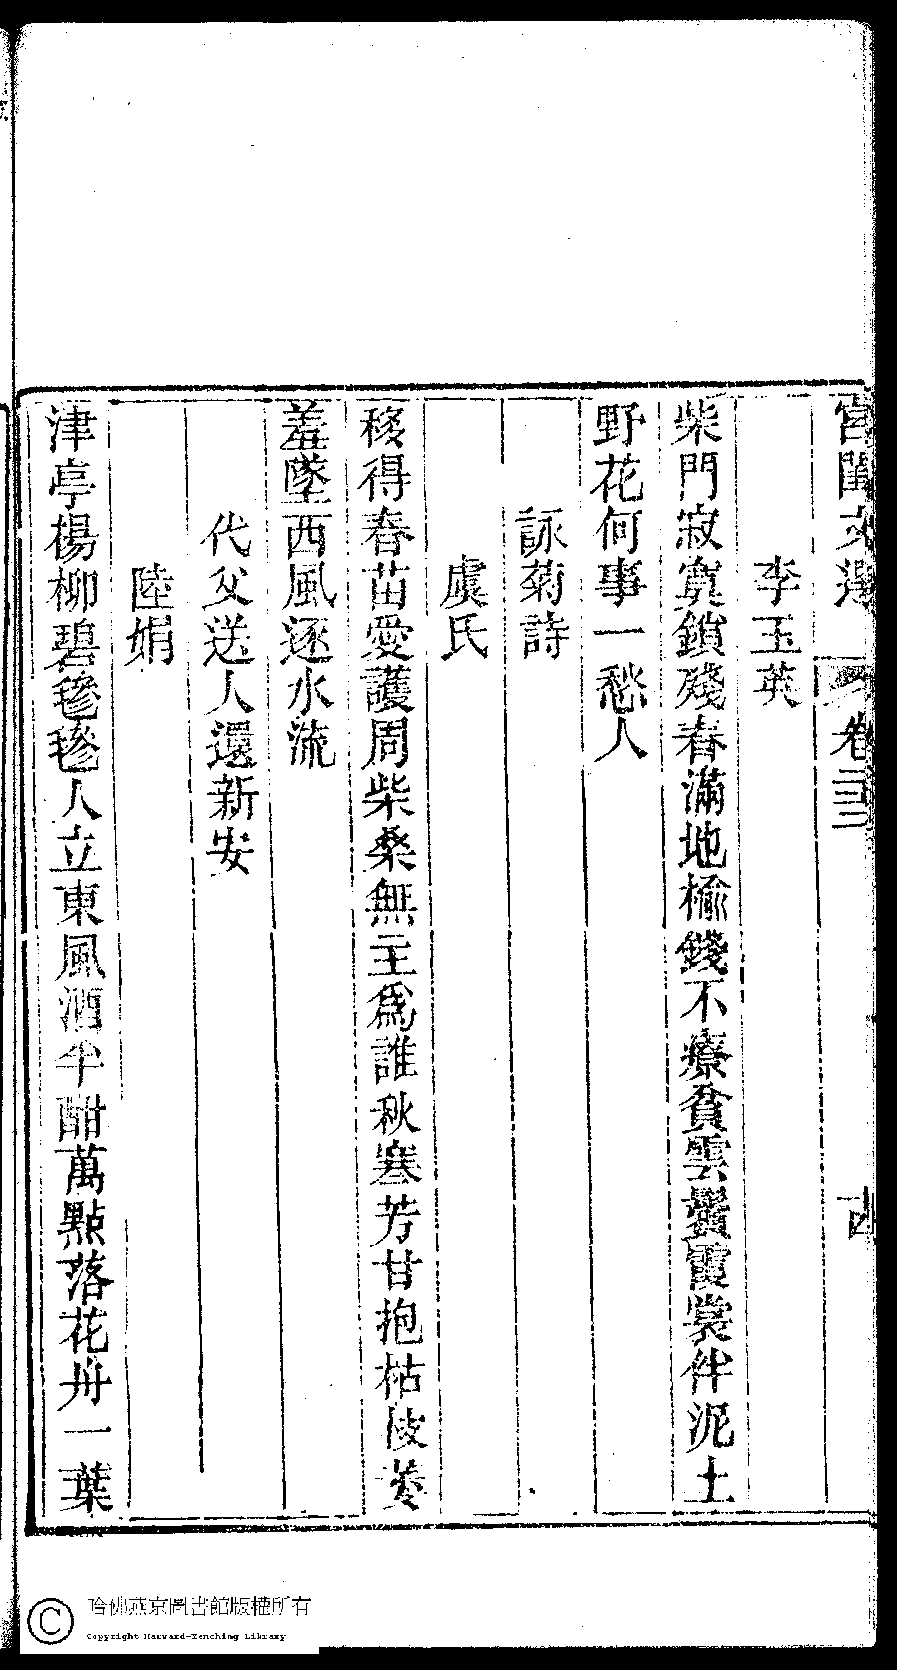 宮閨文選 卷二十三 十四
李玉英
柴門寂寞鎖殘春滿地榆錢不療貧雲鬢霞裳伴泥土
野花何事一愁人
詠菊詩
虞氏
移得春苗愛護周柴桑無主爲誰秋寒芳甘抱枯枝萎
羞墜西風逐水流
代父送人還新安
陸娟
津亭楊柳碧毿毿人立東風酒半酣萬點落花舟一葉
哈佛燕京圖書館版權所有
Copyright Harvard-Yenching Library